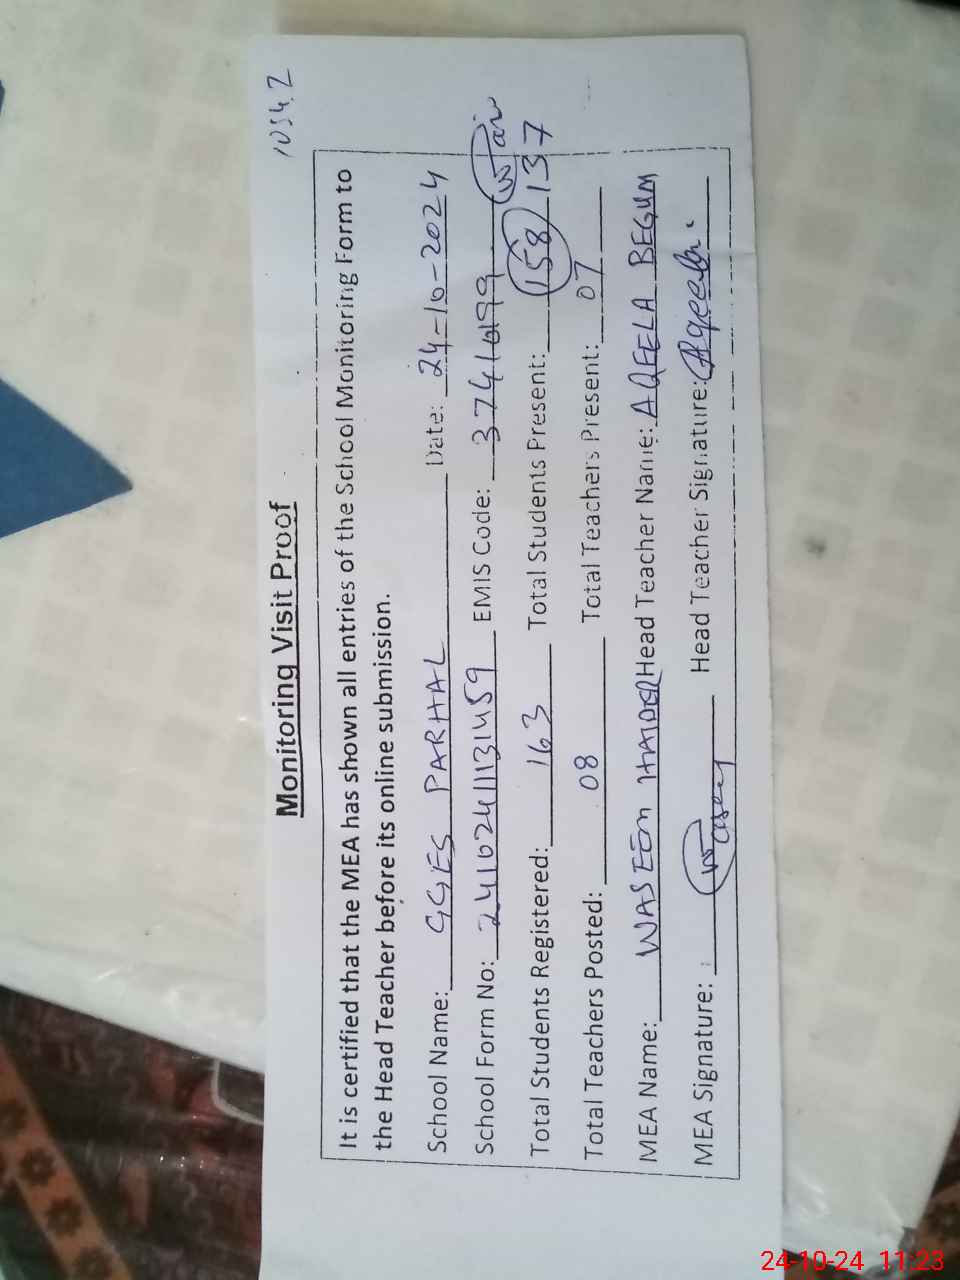 1054.2
Monitoring Visit Proof
It is certified that the MEA has shown all entries of the School Monitoring Form to
the Head Teacher before its online submission.
School Name: GGES PARHAL Date: 24-10-2024
School Form No: 2410241131459 EMIS Code: 37410199
Total Students Registered: 163 Total Students Present: 158 137
Total Teachers Posted: 08 Total Teachers Present: 07
MEA Name: WASEEM HAIDER Head Teacher Name: AQEELA BEGUM
MEA Signature: Head Teacher Signature:
24-10-24 11:23